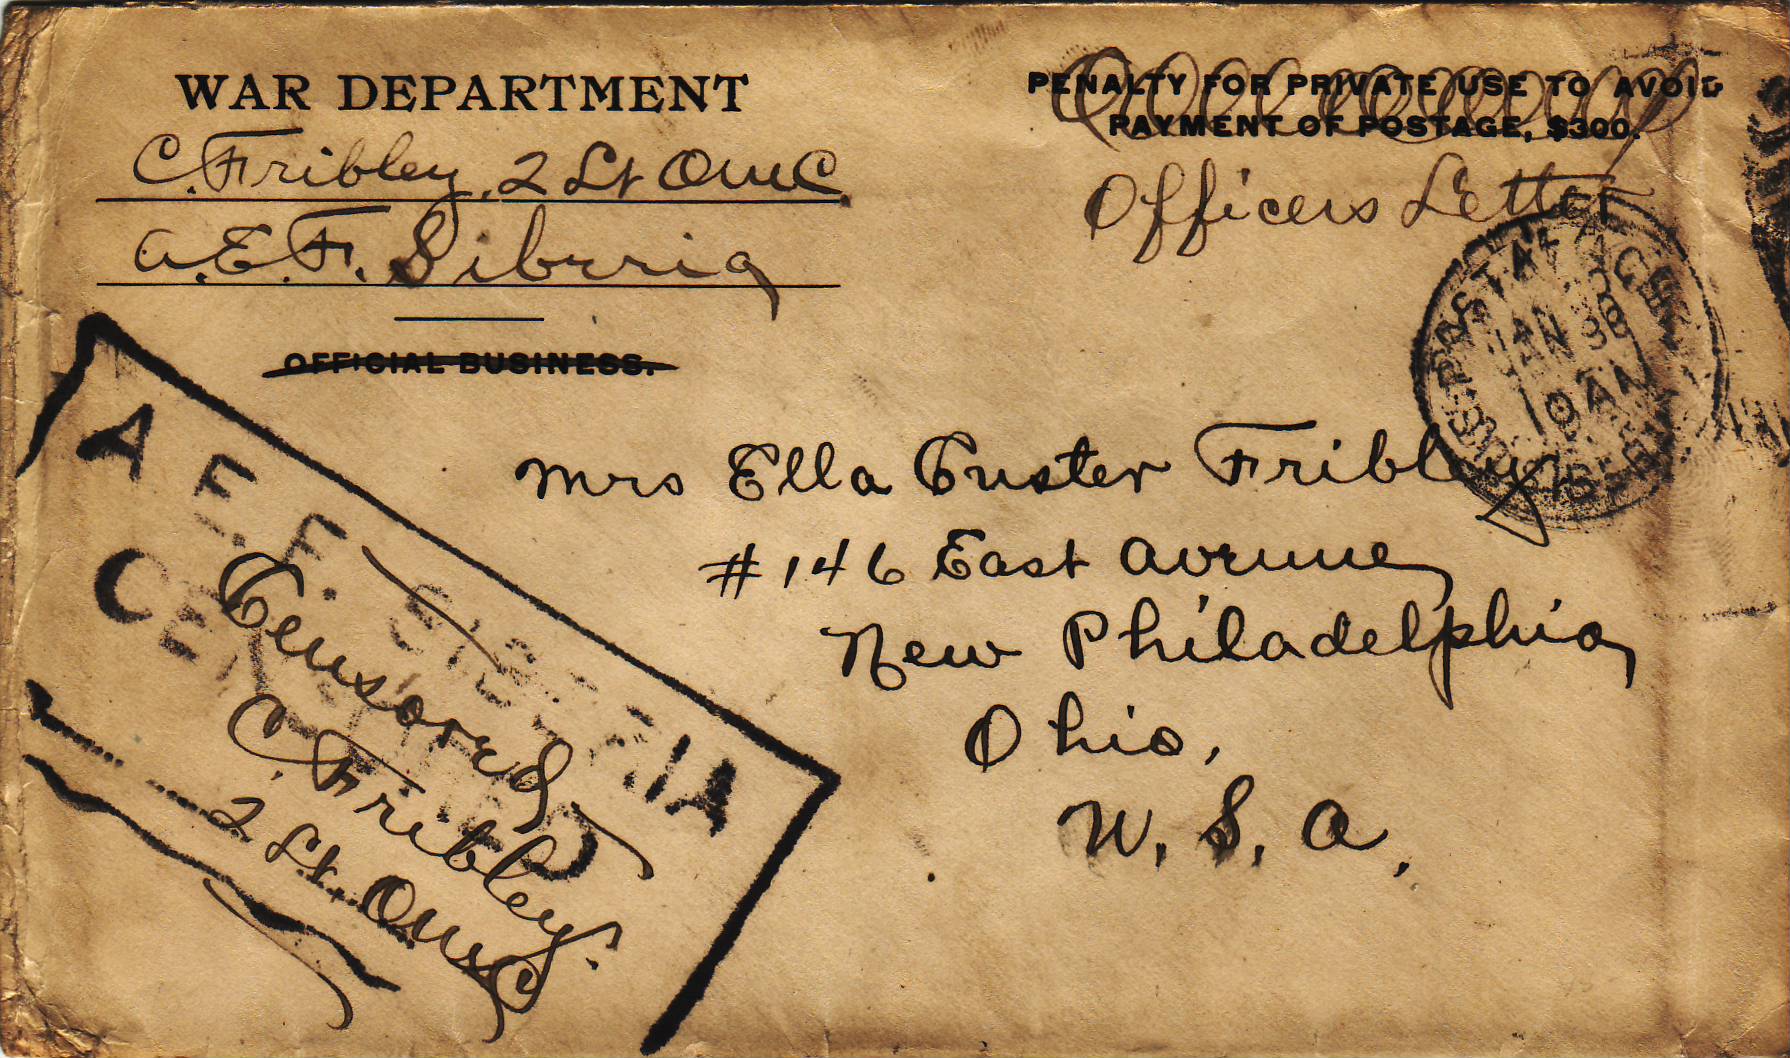 WAR DEPARTMENT
C. Fribley, 2 Lt QMC
A.E.F. Siberia
OFFICIAL BUSINESS.
PENALTY FOR PRIVATE USE TO AVOID
PAYMENT OF POSTAGE, $300.
Officers Letter
JAN
10 AM
Mrs Ella Custer Fribley
#146 East Avenue
New Philadelphia
Ohio,
U. S. A.
A.E.F. SIBERIA
CENSORED
Censored
C. Fribley.
2 Lt. QMC